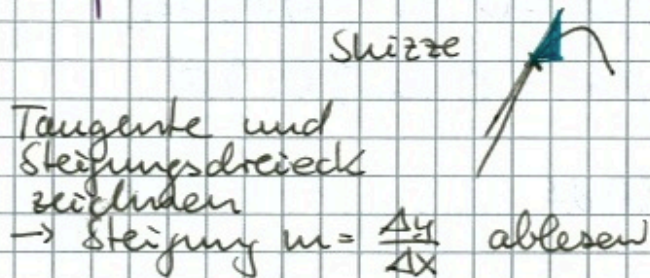 Skizze
Tangente und
Steigungsdreieck
zeichnen
→ Steigung m = Δy/Δx ablesen